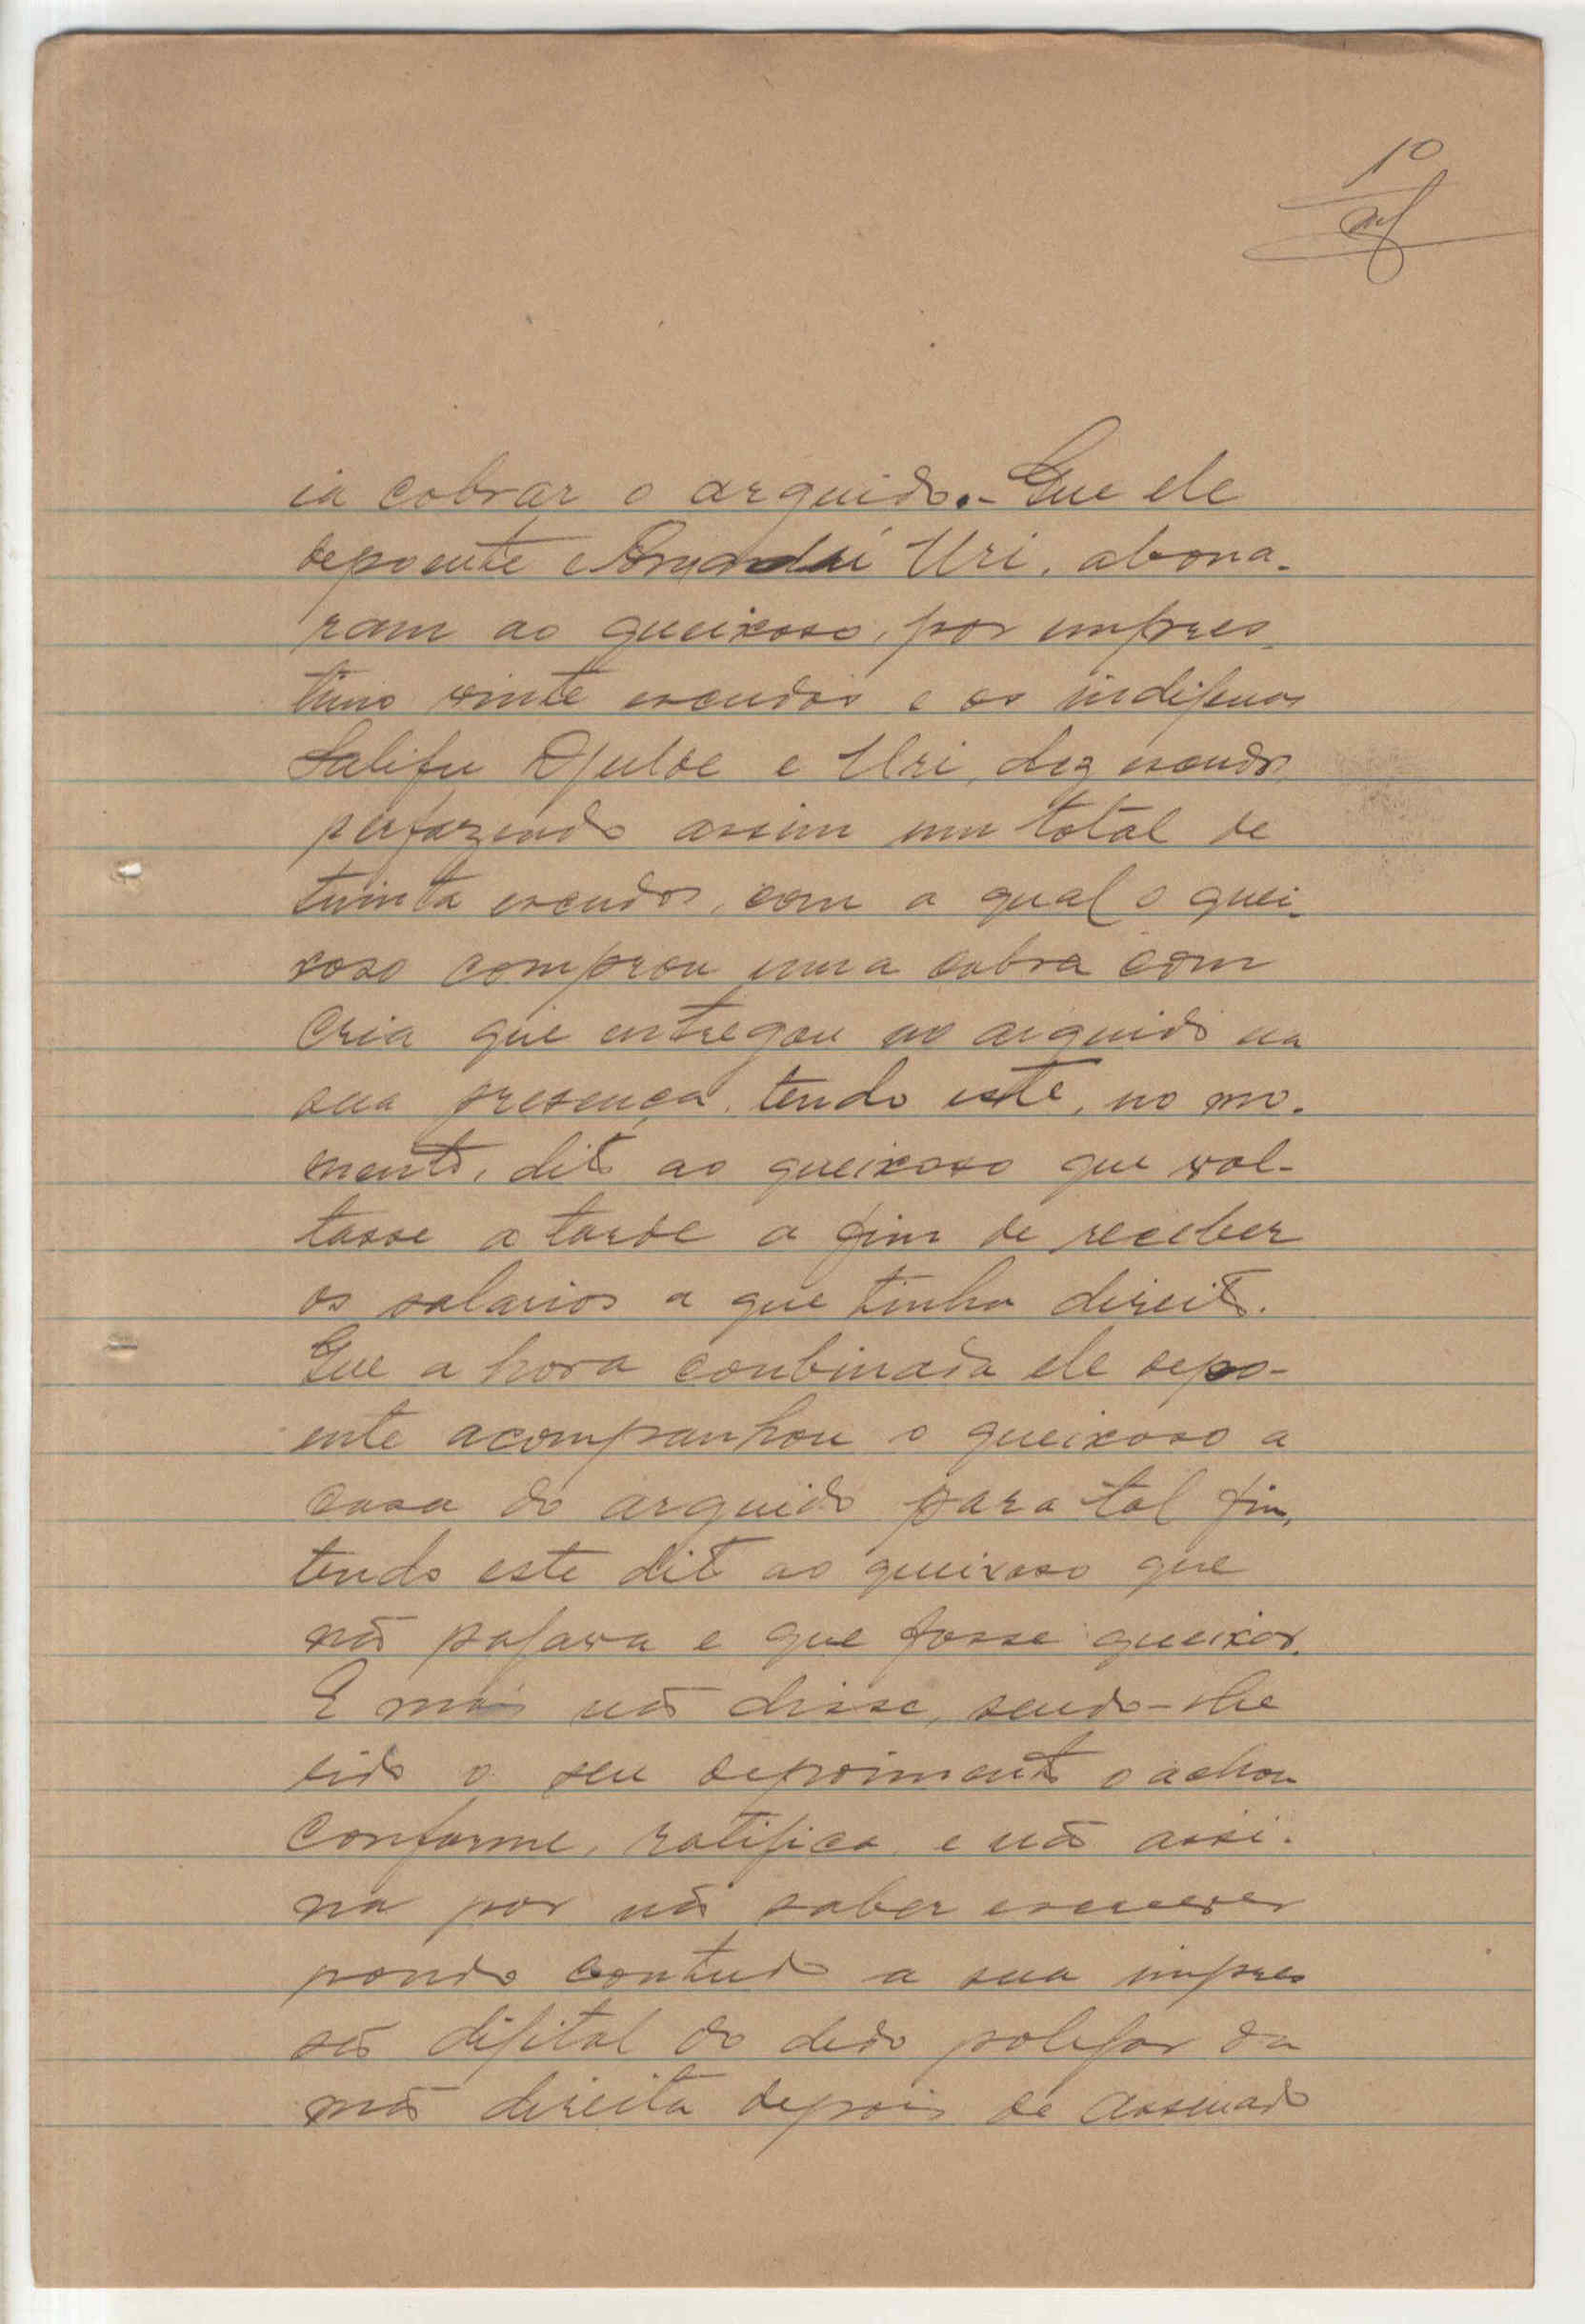 10
ia cobrar o arguido.- Que ele
depoente e Uri, abona-
ram ao queixoso, por empres-
timo vinte escudos e os indigenas
Salifu Djulde e Uri, dez escudos,
perfazendo assim um total de
trinta escudos, com a qual o quei-
xoso comprou uma cabra com
cria que entregou ao arguido na
sua presença, tendo este, no mo-
mento, dito ao queixoso que vol-
tasse a tarde a fim de receber
os salarios a que tinha direito.
Que a hora conbinada ele depo-
ente acompanhou o queixoso a
casa do arguido para tal fim,
tendo este dito ao queixoso que
não pagava e que fosse queixar.
E mais não disse, sendo-lhe
lido o seu depoimento o achou
conforme, ratifica e não assi-
na por não saber escrever
pondo contudo a sua impres
são digital do dedo polegar da
mão direita depois de assinado